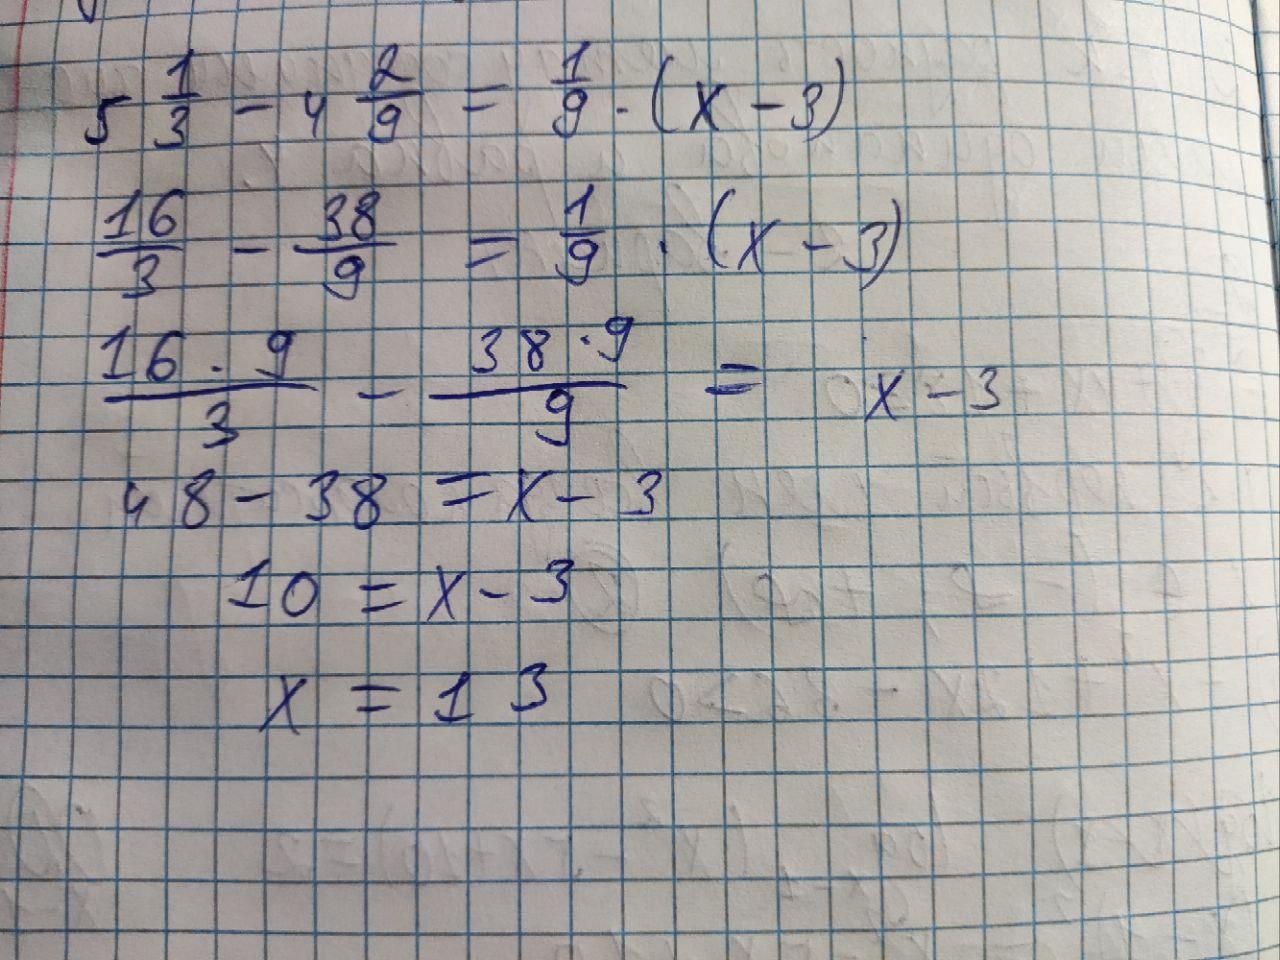 5 1/3 - 4 2/9 = 1/9 · (x - 3)
16/3 - 38/9 = 1/9 · (x - 3)
16 · 9/3 - 38 · 9/9 = x - 3
48 - 38 = x - 3
10 = x - 3
x = 13